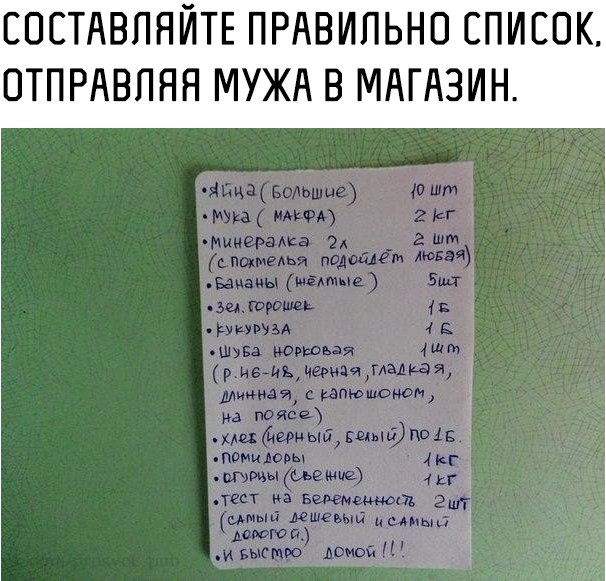 СОСТАВЛЯЙТЕ ПРАВИЛЬНО СПИСОК,
ОТПРАВЛЯЯ МУЖА В МАГАЗИН.
•Яйца (Большие) 10 шт
•Мука ( МАКФА) 2 кг
•Минералка 2л 2 шт
(с похмелья подойдёт любая)
•Бананы (жёлтые) 5шт
•Зел. горошек 1 Б
•Кукуруза 1 Б
•Шуба норковая 1шт
(р. 46-48, чёрная, гладкая,
длинная, с капюшоном,
на поясе)
•хлеб (чёрный, белый) по 1Б.
•помидоры 1кг
•огурцы (свежие) 1кг
•тест на беременность 2шт
(самый дешевый и самый
дорогой.)
•И быстро домой!!!